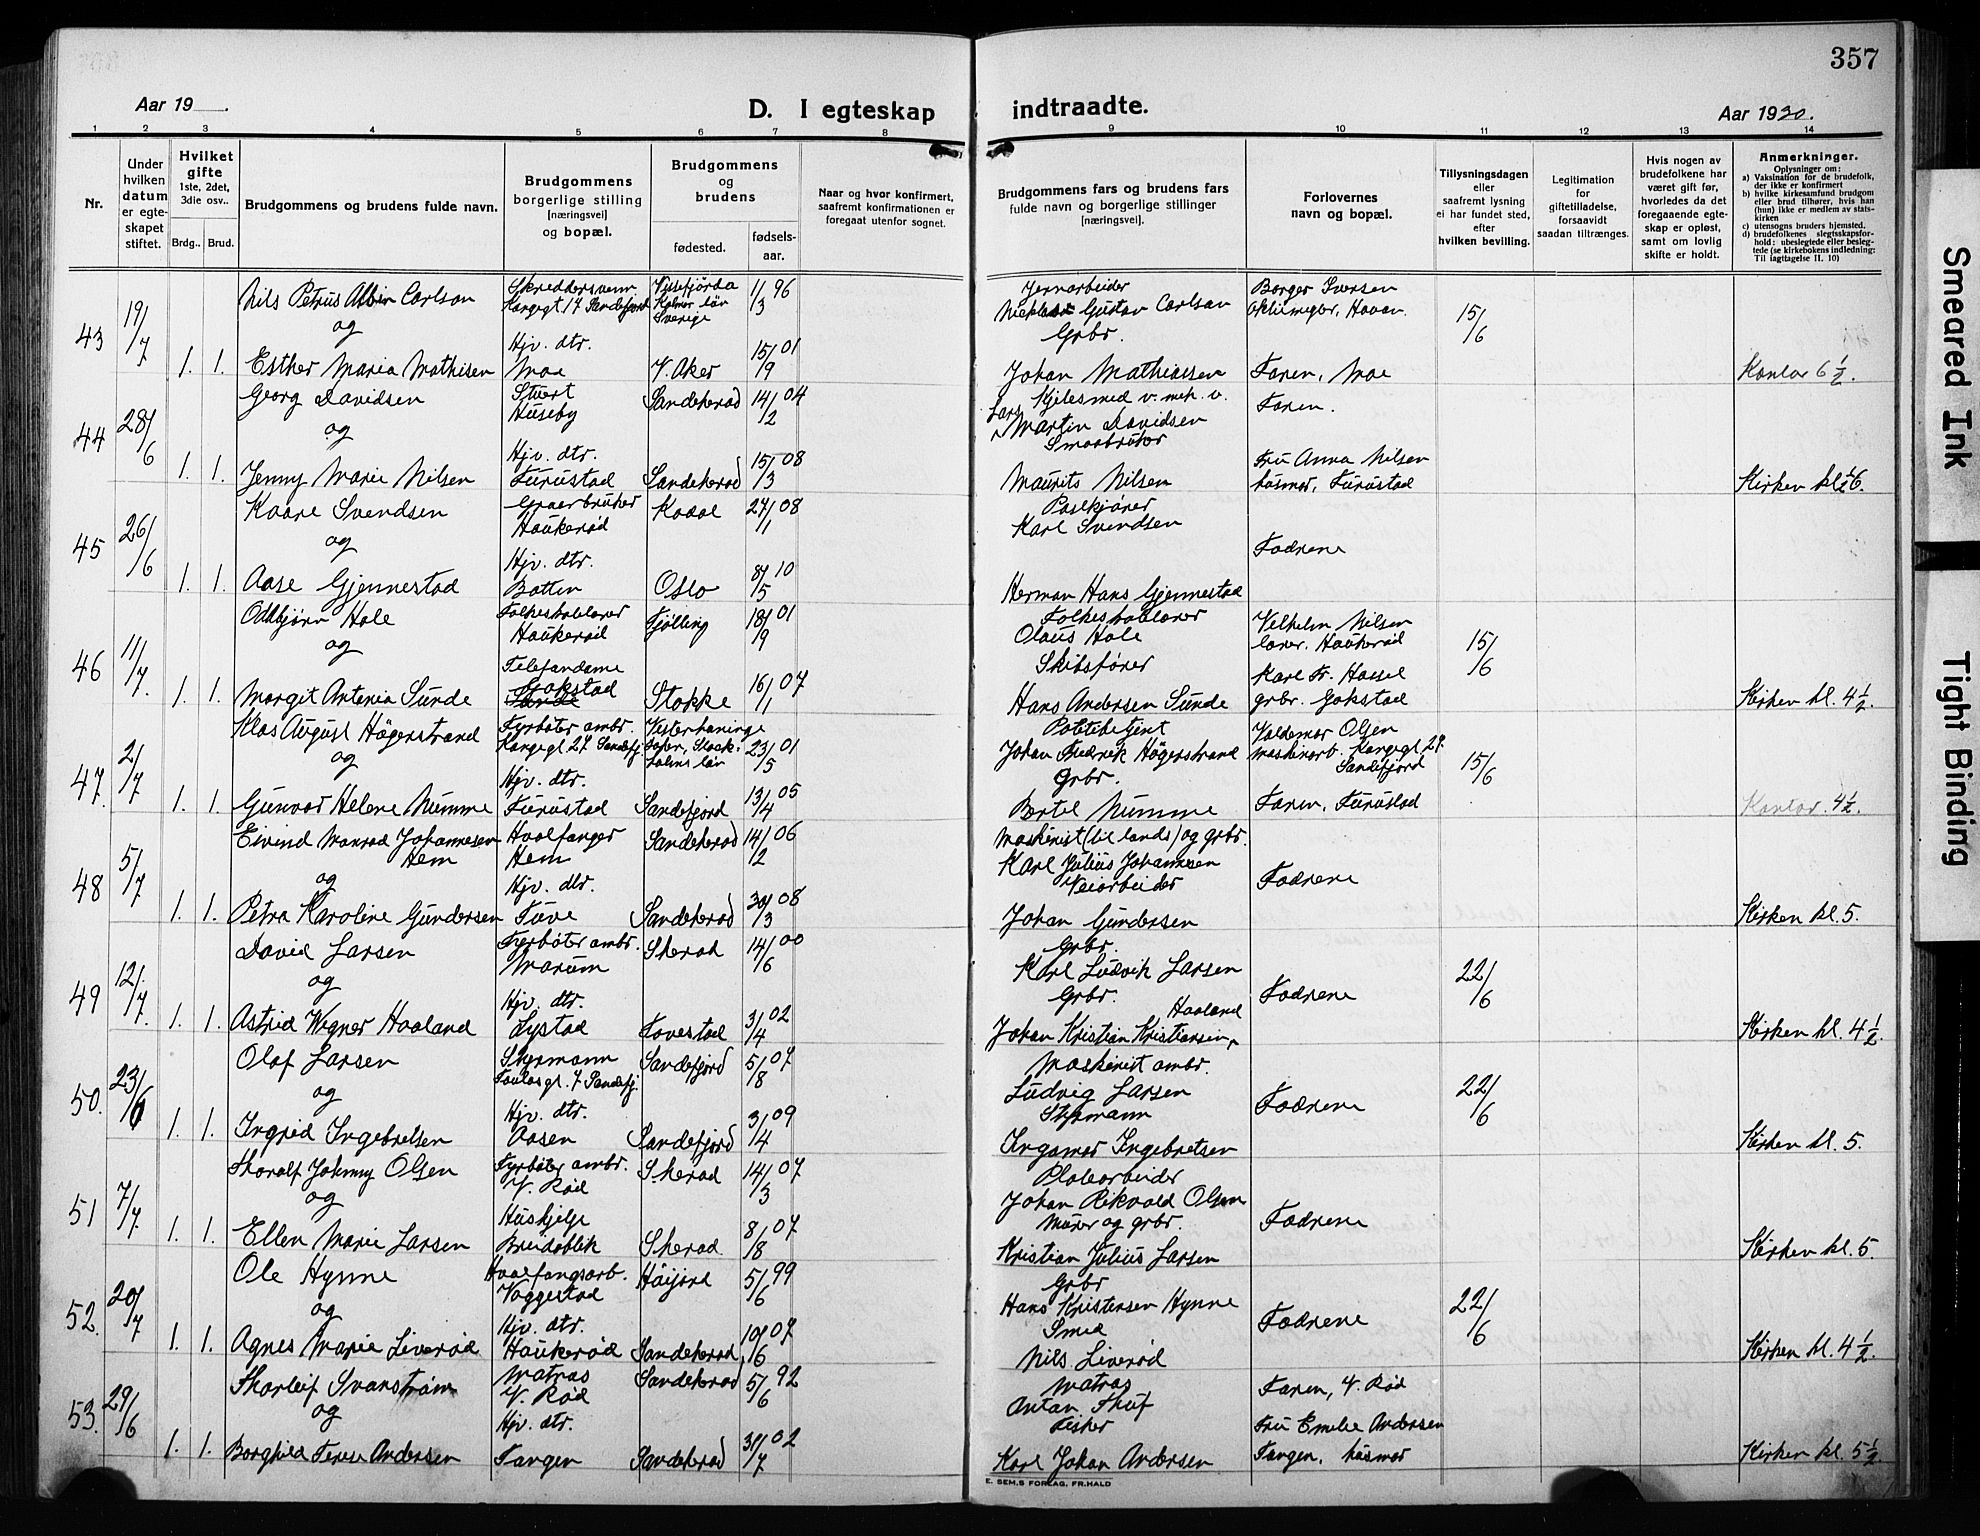 357
Aar 19
D. I egteskap
indtraadte.
Aar 1930.
1 2 3 4 5 6 7 8 9 10 11 12 13 14
Nr.
Under hvilken datum er egteskapet stiftet.
Hvilket gifte
1ste, 2det, 3die osv..
Brdg.. Brud.
Brudgommens og brudens fulde navn.
Brudgommens borgerlige stilling [næringsvei] og bopæl.
Brudgommens og brudens
fødested.
fødsels-aar.
Naar og hvor konfirmert, saafremt konfirmationen er foregaat utenfor sognet.
Brudgommens fars og brudens fars fulde navn og borgerlige stillinger [næringsvei].
Forlovernes navn og bopæl.
Tillysningsdagen eller saafremt lysning ei har fundet sted, efter hvilken bevilling.
Legitimation for giftetilladelse, forsaavidt saadan tiltrænges.
Hvis nogen av brudefolkene har været gift før, hvorledes da det foregaaende egteskap er opløst, samt om lovlig skifte er holdt.
Anmerkninger.
Oplysninger om:
a) Vaksination for de brudefolk, der ikke er konfirmert
b) hvilke kirkesamfund brudgom eller brud tilhører, hvis han (hun) ikke er medlem av statskirken
c) utensogns bruders hjemsted.
d) brudefolkenes slegtsskapsforhold: ubeslegtede eller beslegtede (se kirkebokens indledning: Til iagttagelse II. 10)
43 19/7 1. 1.
Nils Petrus Albin Carlson
og
Esther Maria Mathisen
Skreddersvenn
Kongegt. 17 Sandefjord
Hjv. dtr.
Moe
Kalmar län
Sverige
11/3 96
V. Aker 15/9 01
Jernarbeider
Gustav Carlson
Grbr.
Johan Mathiassen
Borger Iversen
Faren, Moe
15/6
Kontor 6 1/2.
44 28/6 1. 1.
Georg Davidsen
og
Jenny Marie Nilsen
Stuert
Huseby
Hjv. dtr.
Furustad
Sandeherad 14/2 04
Sandeherad 15/3 08
Kjelesmed v. mek. v.
Lars Martin Davidsen
Smaabruker
Maurits Nilsen
Faren.
Fru Anna Nilsen
husmor, Furustad
Kirken kl. 1/2 6.
45 26/6 1. 1.
Kaare Svendsen
og
Aase Gjennestad
Haukerød
Hjv. dtr.
Botten
Kodal 27/1 08
Oslo 8/5 10
Karl Svendsen
Herman Hans Gjennestad
Fædrene
46 11/7. 1. 1.
Oddbjørn Hole
og
Margit Antonia Sunde
Folkeskolelærer
Haukerød
Telefondame
Gokstad
Tjølling 18/9 01
Stokke 16/1 07
Folkeskolelærer
Olaus Hole
Skibsfører
Hans Andersen Sunde
Vilhelm Nilsen
lærer, Haukerød
Karl Fr. Hassel
grbr. Gokstad
15/6
Kirken kl. 4 1/2.
47. 2/7 1. 1.
Klas August Högerstrand
og
Gunvor Helene Numme
Fyrbøter ambr.
Kongegt 27 Sandefj.
Hjv. dtr.
Furustad
Vesterhaninge
Stockholms län
23/5 01
Sandefjord 13/4 05
Politibetjent
Johan Fredrik Högerstrand
Grbr.
Bertel Numme
Valdemar Olsen
maskinarb. Kongegt 27.
Sandefjord
Faren, Furustad
15/6
Kontor. 4 1/2.
48 5/7 1. 1.
Eivind Monrad Johannesen
Hem
og
Petra Karoline Gundersen
Hvalfanger
Hem
Hjv. dtr.
Tuve
Sandeherad 14/2 06
Sandeherad 30/3 08
Maskinist (til lands) og grbr.
Karl Julius Johannesen
Veiarbeider
Johan Gundersen
Fædrene
Kirken kl. 5.
49 12/7. 1. 1.
David Larsen
og
Astrid Wegner Haaland
Fyrbøter ambr.
Marum
Hjv. dtr.
Lystad
Sherad 14/6 00
Tovestad 3/4 02
Grbr.
Karl Ludvik Larsen
Grbr.
Haaland
Johan Kristian Kristiansen
Fædrene
22/6
Kirken kl. 4 1/2.
50. 23/6 1. 1.
Olaf Larsen
og
Ingrid Ingebretsen
Styrmann
7 Sandefj.
Hjv. dtr.
Aasen
Sandefjord 5/8 07
Sandefjord 3/4 09
Maskinist ambr.
Ludvig Larsen
Styrmann
Ingomar Ingebretsen
Fædrene
22/6
Kirken kl. 5.
51 7/7 1. 1.
Thoralf Johnny Olsen
og
Ellen Marie Larsen
Fyrbøter ambr.
V. Rød
Hushjelp
Breidablik
Sherad 14/3 07
Sherad 8/8 07
Platearbeider
Johan Rikvald Olsen
Murer og grbr.
Kristian Julius Larsen
Fædrene
Kirken kl. 5.
52. 20/7 1. 1.
Ole Hynne
og
Agnes Marie Liverød
Hvalfangsarb.
Vaggestad
Hjv. dtr.
Haukerød
Høijord 5/6 99
Sandeherad 19/6 07
Grbr
Hans Kristensen Hynne
Smed
Nils Liverød
Fædrene
22/6
Kirken kl. 4 1/2.
53. 29/6 1. 1.
Thorleif Svanstrøm
og
Borghild Terese Andersen
Matros
V. Rød
Hjv. dtr.
Tangen
Sandeherad 5/6 92
Sandeherad 31/7 02
Matros
Anton Thuf
Fisker
Karl Johan Andersen
Faren, V. Rød
Fru Emelie Andersen
Tangen, husmor
Kirken kl. 5 1/2.
E. SEM.S FORLAG, FR.HALD
Smeared Ink
Tight Binding